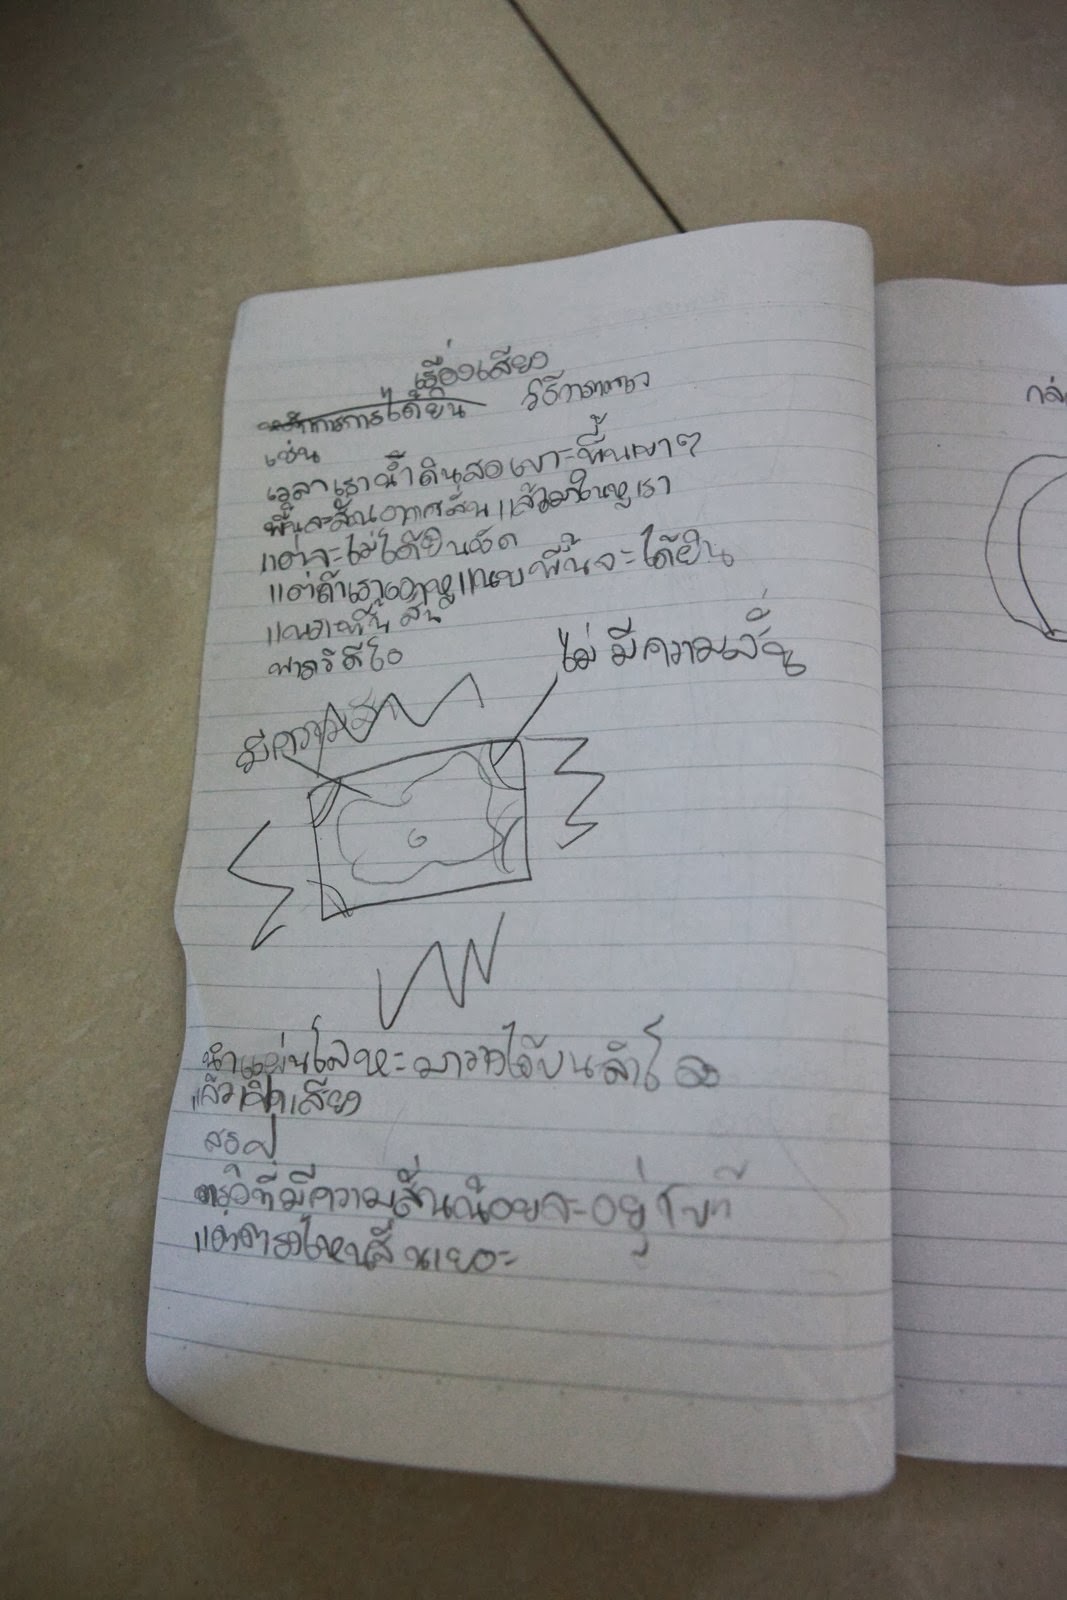 เรื่องเสียง
หลักการการได้ยิน วิธีการ
เช่น
เวลาเรานำดินสอเคาะพื้นเบาๆ
พื้นจะสั่นอากาศสั่นแล้วมาในหูเรา
แต่จะไม่ได้ยินชัด
แต่ถ้าเราเอาหูแนบพื้นจะได้ยิน
เพราะพื้นสั่น
ไม่มีความสั่น
มีความสั่น
นำแผ่นโลหะมาวางไว้บนลำโพง
แล้วเปิดเสียง
สรุป
ตรงที่มีความสั่นน้อยจะอยู่
แต่ตรงไหนสั่นเยอะ
กล่